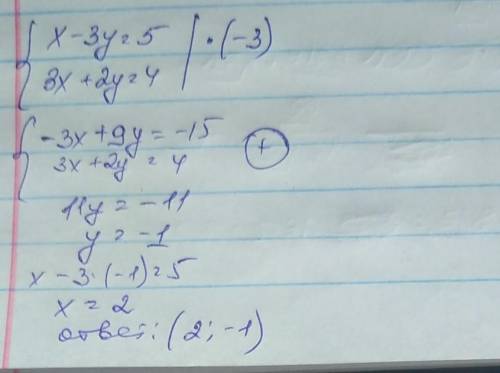 x - 3y = 5 | · (-3)
3x + 2y = 4
-3x + 9y = -15
3x + 2y = 4 (+)
11y = -11
y = -1
x - 3 · (-1) = 5
x = 2
ответ: (2; -1)